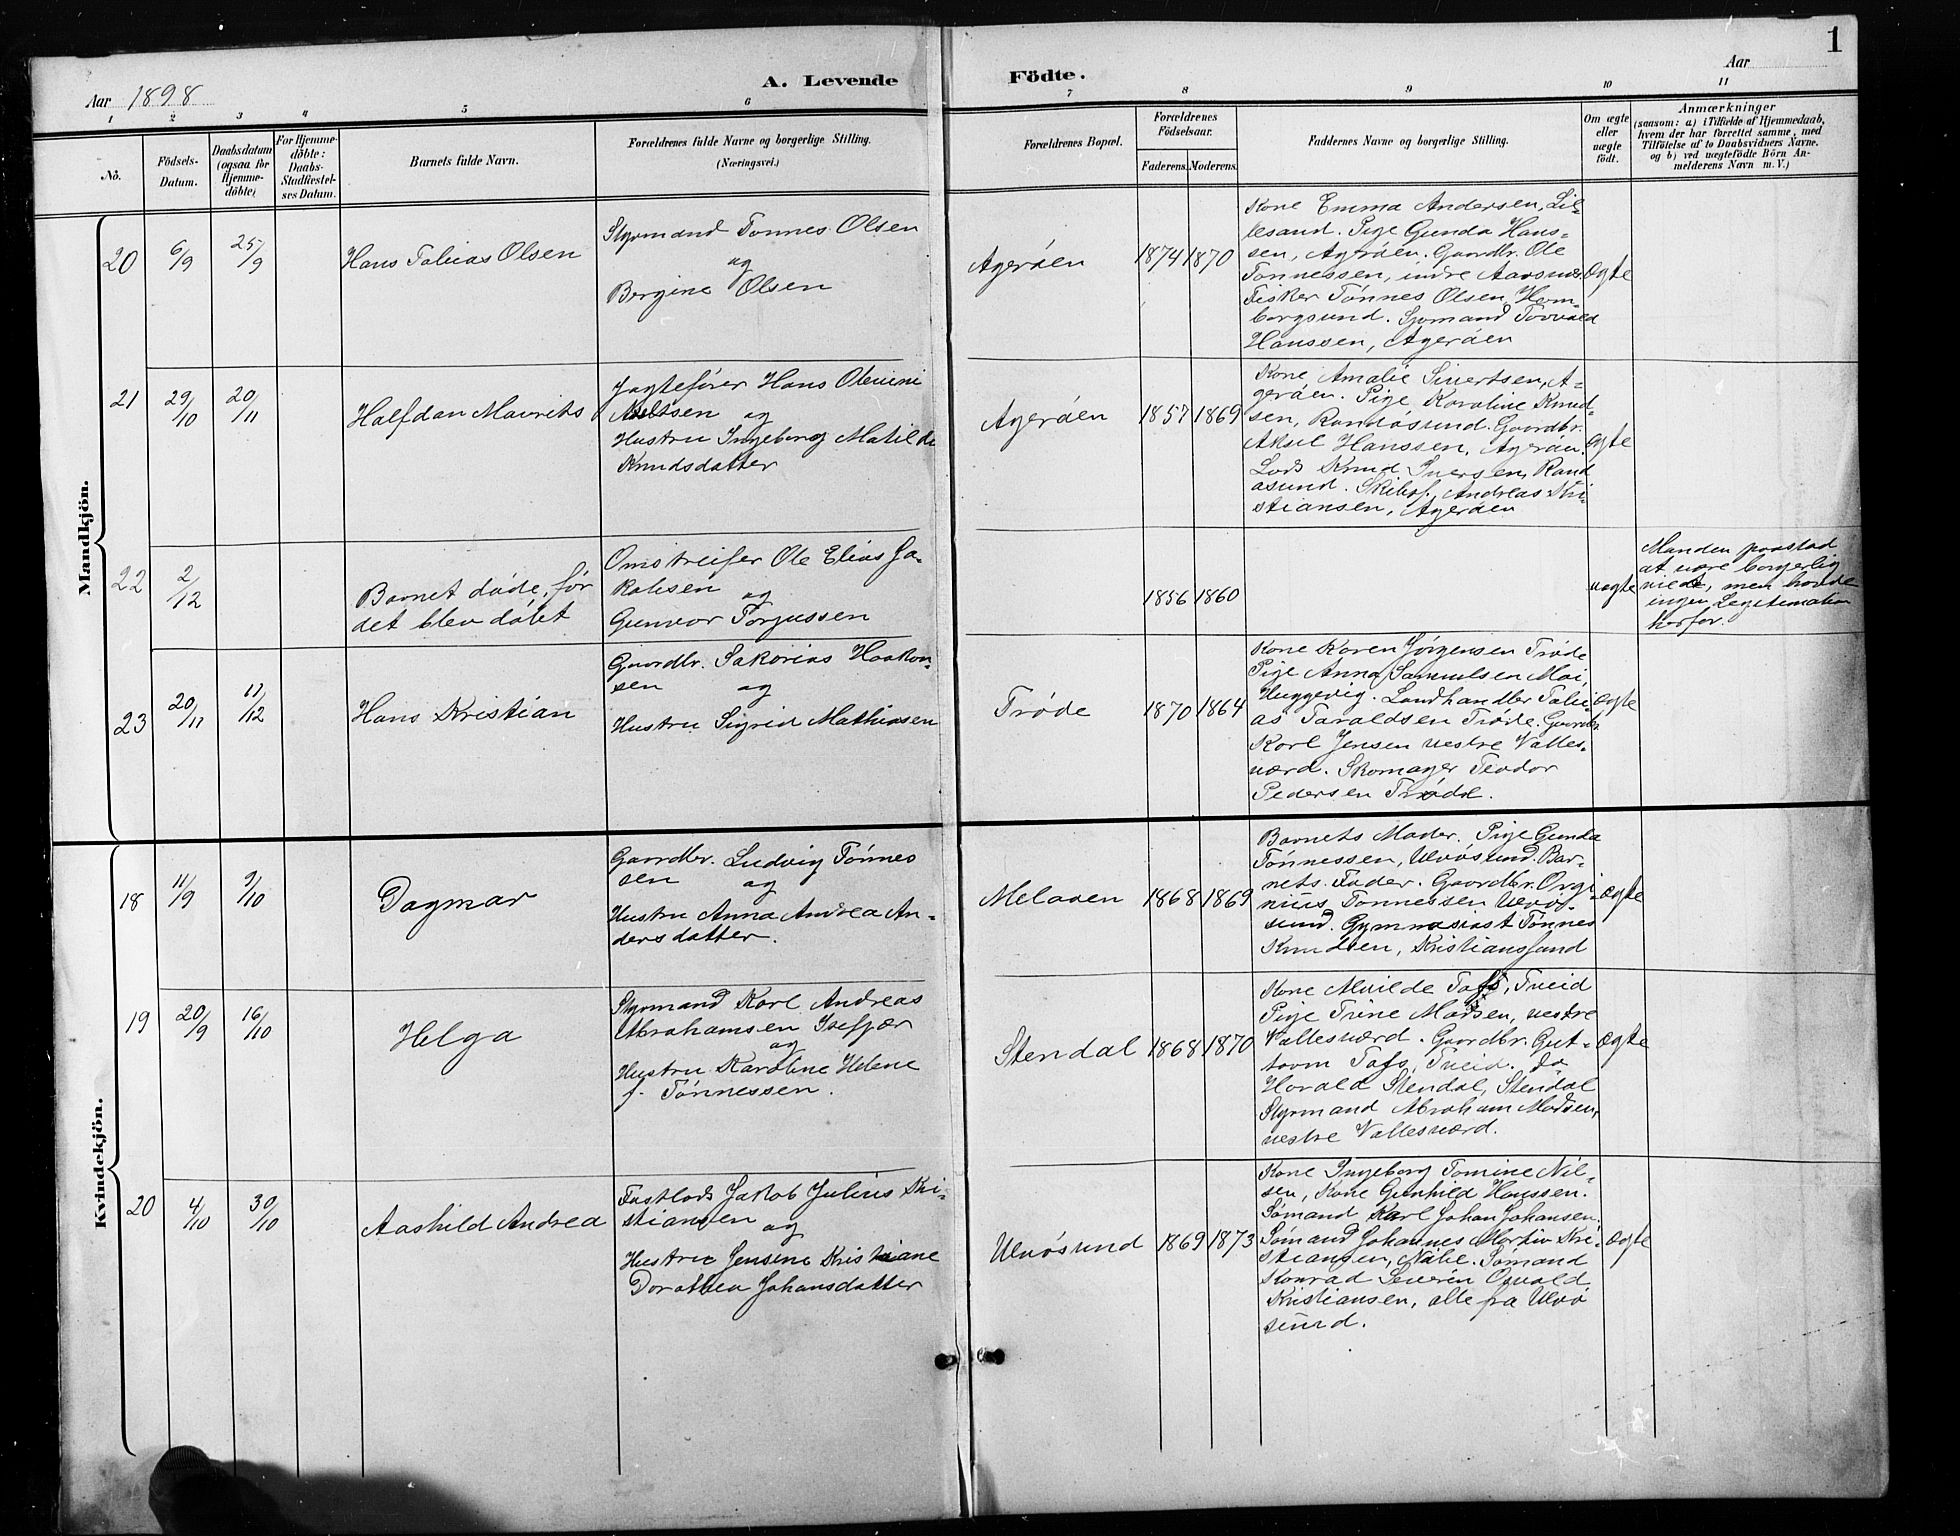 1
Aar 1898
A. Levende
Födte.
Aar
1 2 3 4 5 6 7 8 9 10 11
No.
Födsels-
Datum.
Daabsdatum
(ogsaa for
Hjemme-
döbte)
For Hjemme-
döbte:
Daabs-
Stadfæstel-
ses Datum.
Barnets fulde Navn.
Forældrenes fulde Navne og borgerlige Stilling.
(Næringsvei.)
Forældrenes Bopæl.
Forældrenes
Födselsaar.
Faderens. Moderens.
Faddernes Navne og borgerlige Stilling.
Om ægte
eller
uægte
födt.
Anmærkninger
(saasom: a) i Tilfælde af Hjemmedaab,
hvem der har forrettet samme, med
Tilföielse af to Daabsvidners Navne.
og b) ved uægtefödte Börn An-
melderens Navn m. V.)
Mandkjön.
20
6/9
25/9
Hans Tobias Olsen
Styrmand Tønnes Olsen
og
Bergine Olsen
Agerøen
1874 1870
Kone Emma Andersen, Lil-
lesand. Pige Gunda Hans-
sen, Agerøen. Gaardbr. Ole
Tønnessen, indre Aarsnes.
Fisker Tønnes Olsen, Hom-
borgsund. Sjømand Torvald
Hanssen, Agerøen
ægte
21
29/10
20/11
Halfdan Mauritz
Jagtefører Hans Oleuini
og
Hustru Ingeborg Matilde
Knudsdatter
Agerøen
1857 1869
Kone Amalie Sivertsen, A-
gerøen. Pige Karoline Knud-
sen, Randøsund. Gaardbr.
Aksel Hanssen, Agerøen.
Lods Knud Iversen, Rand
øsund. Skibsf. Andreas Kri-
stiansen, Agerøen
ægte
22
2/12
Barnet døde, før
det blev døbt
Omstreifer Ole Elias Ja-
kobsen og
Gunvor Torjussen
1856 1860
uægte
Manden paastod
at være borgerlig
viet, men havde
ingen Legitimation
herfor.
23
20/11
11/12
Hans Kristian
Gaardbr. Sakarias Haakon-
sen og
Hustru Sigrid Mathiasen
Trøde
1870 1864
Kone Karen Jørgensen Trøde
Pige Anna Samuelsen Moi,
Heggevig. Landhandler Tobi-
as Taraldsen Trøde. Gaardbr.
Karl Jensen vestre Valles-
værd. Skomager Teodor
Pedersen Trøde.
ægte
Kvindekjön.
18
11/9
9/10
Dagmar
Gaardbr. Ludvig Tønnes
sen og
Hustru Anna Andrea An-
dersdatter.
Melaaen
1868 1869
Barnets Moder. Pige Gunda
Tønnessen, Ulvøsund. Bar-
nets Fader. Gaardbr. Orgi-
nius Tønnessen Ulvø-
sund. Gymnasiast Tønnes
Knudsen, Kristianssand
ægte
19
20/9
16/10
Helga
Styrmand Karl Andreas
Abrahamsen Isefjær
og
Hustru Karoline Helene
f. Tønnessen.
Stendal
1868 1870
Kone Milde Tofs, Tveid
Pige Trine Madsen, vestre
Vallesværd. Gaardbr. Gut-
torm Tofs, Tveid. do
Harald Stendal, Stendal
Styrmand Abraham Madsen,
vestre Vallesværd.
ægte
20
4/10
30/10
Aashild Andrea
Fastlods Jakob Julius Kri-
stiansen og
Hustru Jensine Kristiane
Dorothea Johansdatter
Ulvøsund
1869 1873
Kone Ingeborg Tomine Nil-
sen, Kone Gunhild Hanssen.
Sømand Karl Johan Johansen,
Sømand Johannes Martin Kri-
stiansen, Sømand
Konrad Severin Osvald
Kristiansen, alle fra Ulvø
sund.
ægte